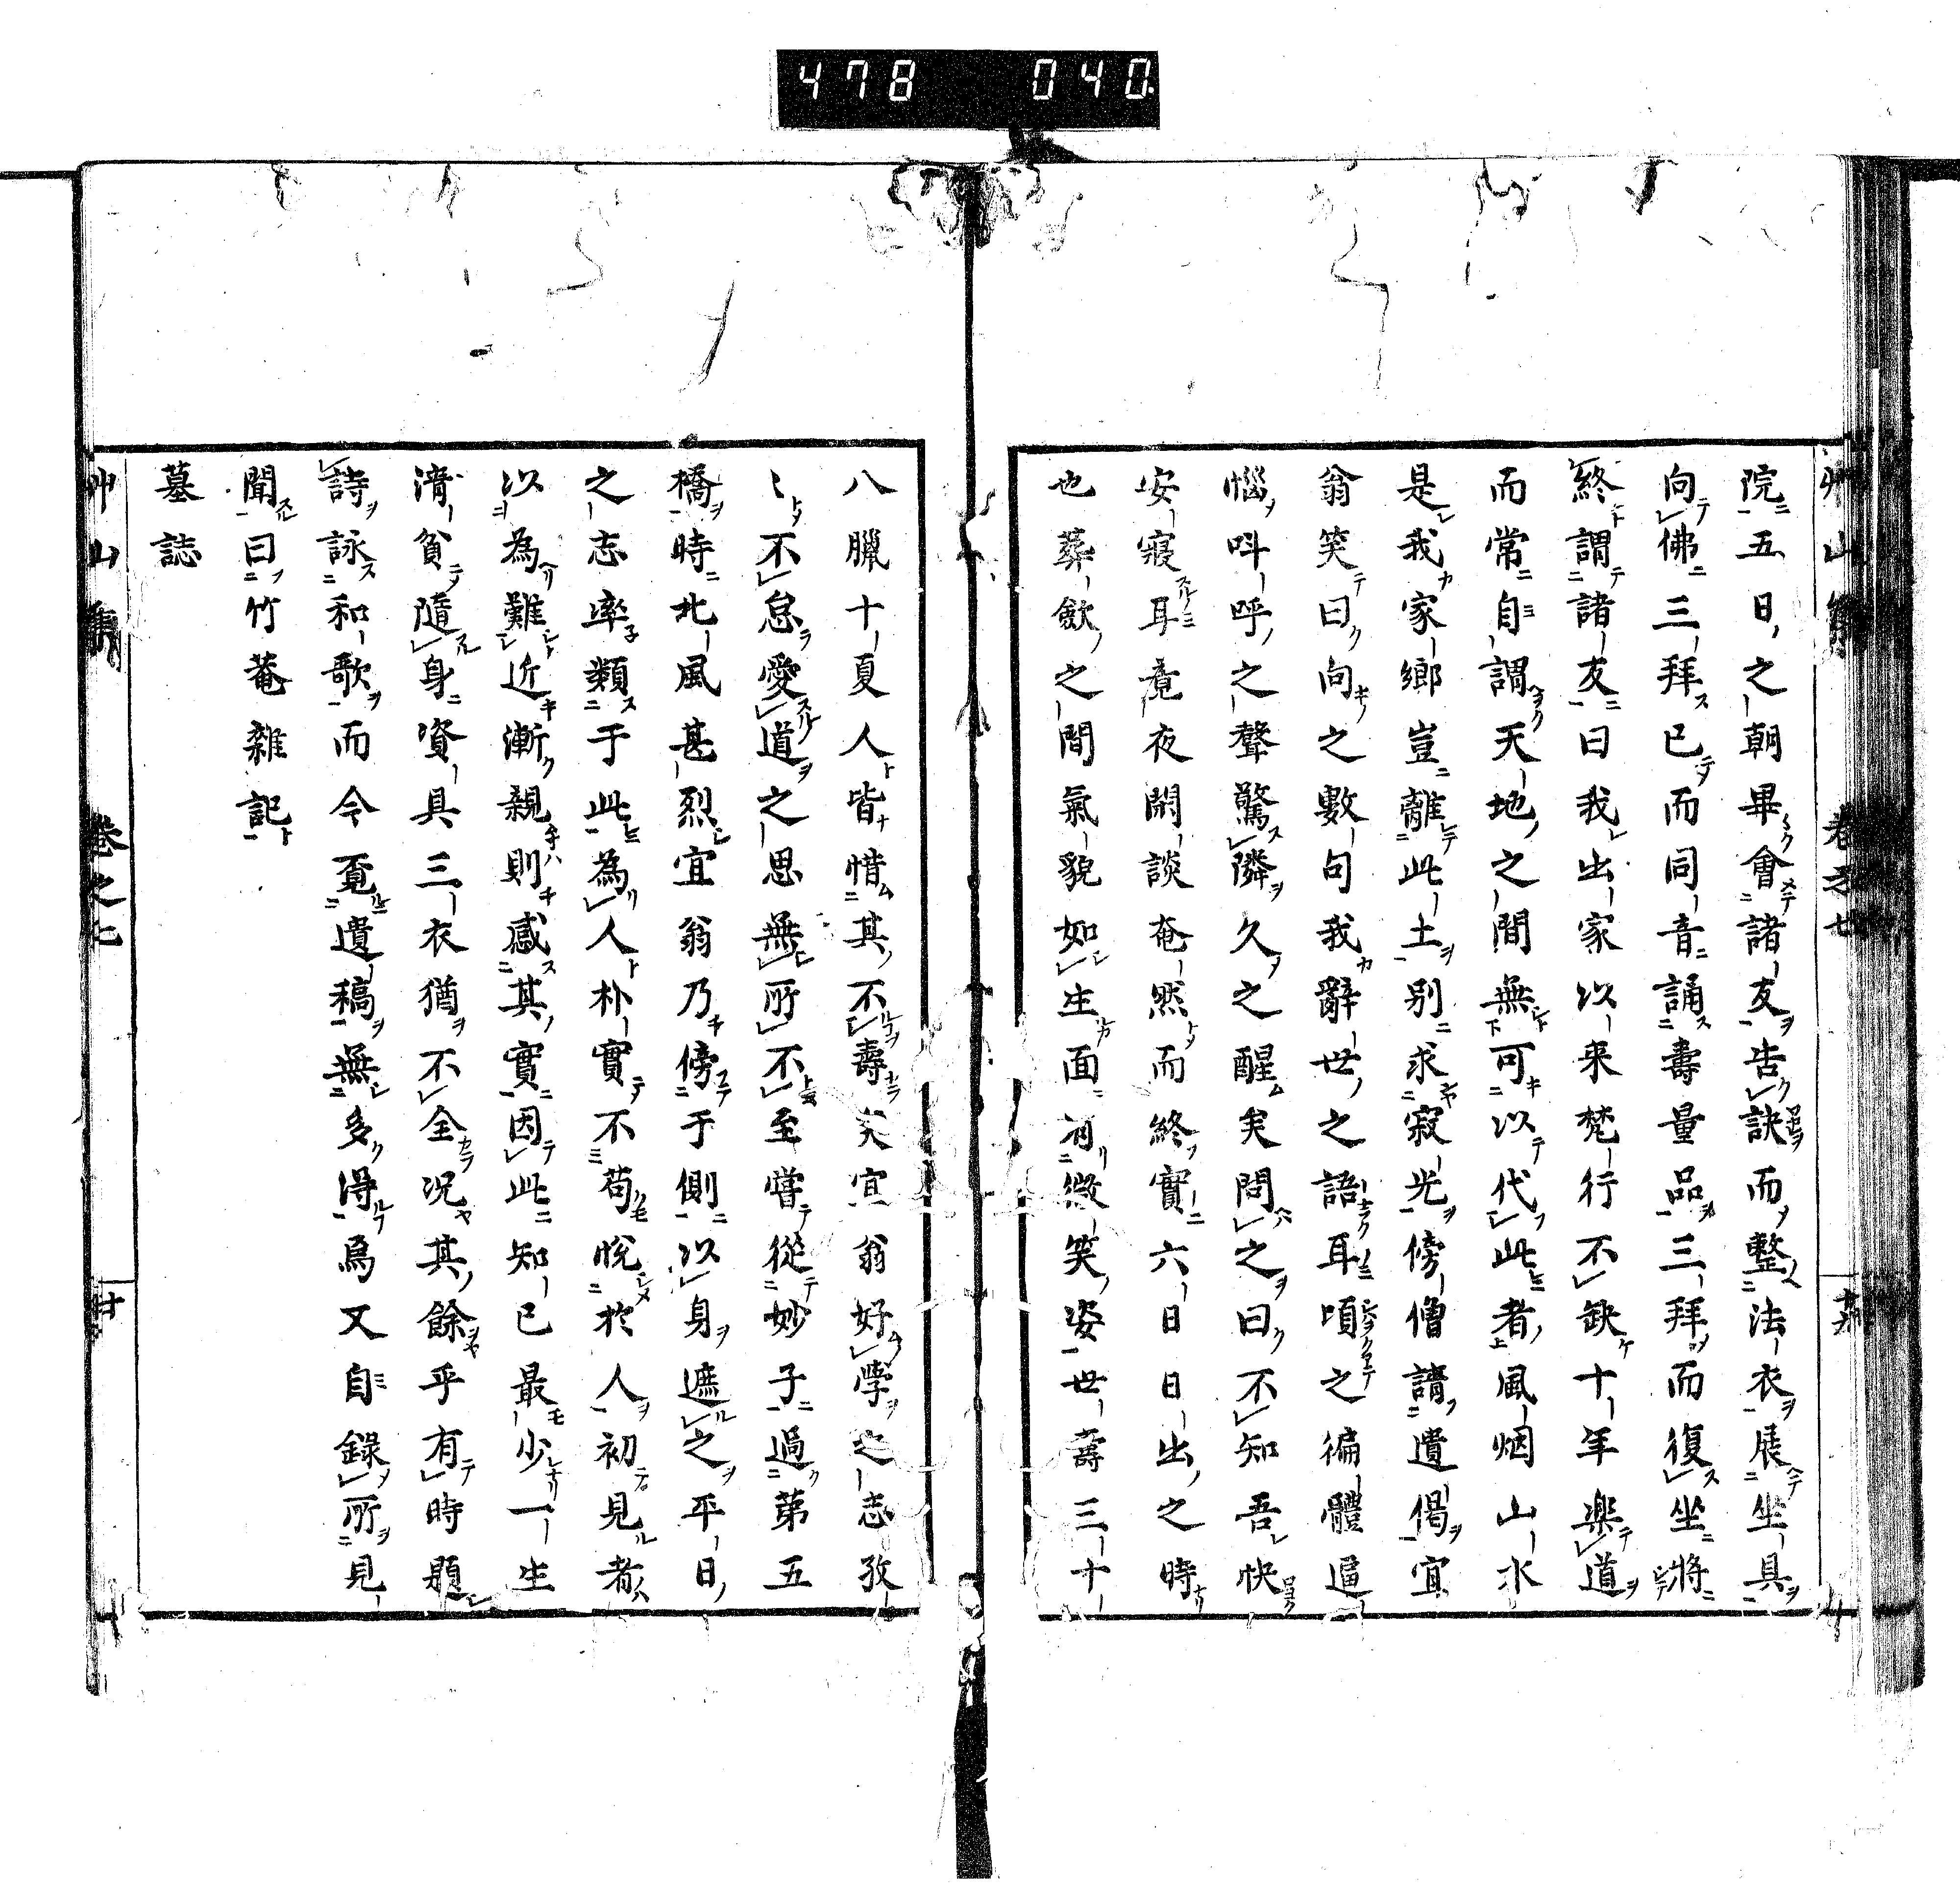 478 040
艸山集 卷之七 十九
院五日之朝畢會諸友告訣而整法衣展坐具
向佛三拜已而同音誦壽量品三拜而復坐將
終謂諸友曰我出家以来梵行不缺十年樂道
而常自謂天地之間無可以代此者風烟山水
是我家鄉豈離此土別求寂光傍僧請遺偈宜
翁笑曰向之數句我辭世之語耳頃之徧體逼
惱呌呼之聲驚隣久之醒矣問之曰不知吾快
安寢耳竟夜閑談奄然而終實六日日出之時
也葬斂之間氣貌如生面有微笑姿世壽三十
八臘十夏人皆惜其不壽矣宜翁好學之志孜
〻不怠愛道之思無所不至嘗從妙子過第五
橋時北風甚烈宜翁乃傍于側以身遮之平日
之志率類于此為人朴實不苟悅於人初見者
以為難近漸親則感其實因此知已最少一生
清貧隨身資具三衣猶不全况其餘乎有時題
詩詠和歌而今覔遺稿無多得焉又自錄所見
聞曰竹菴雜記
墓誌
艸山集 卷之七 廿